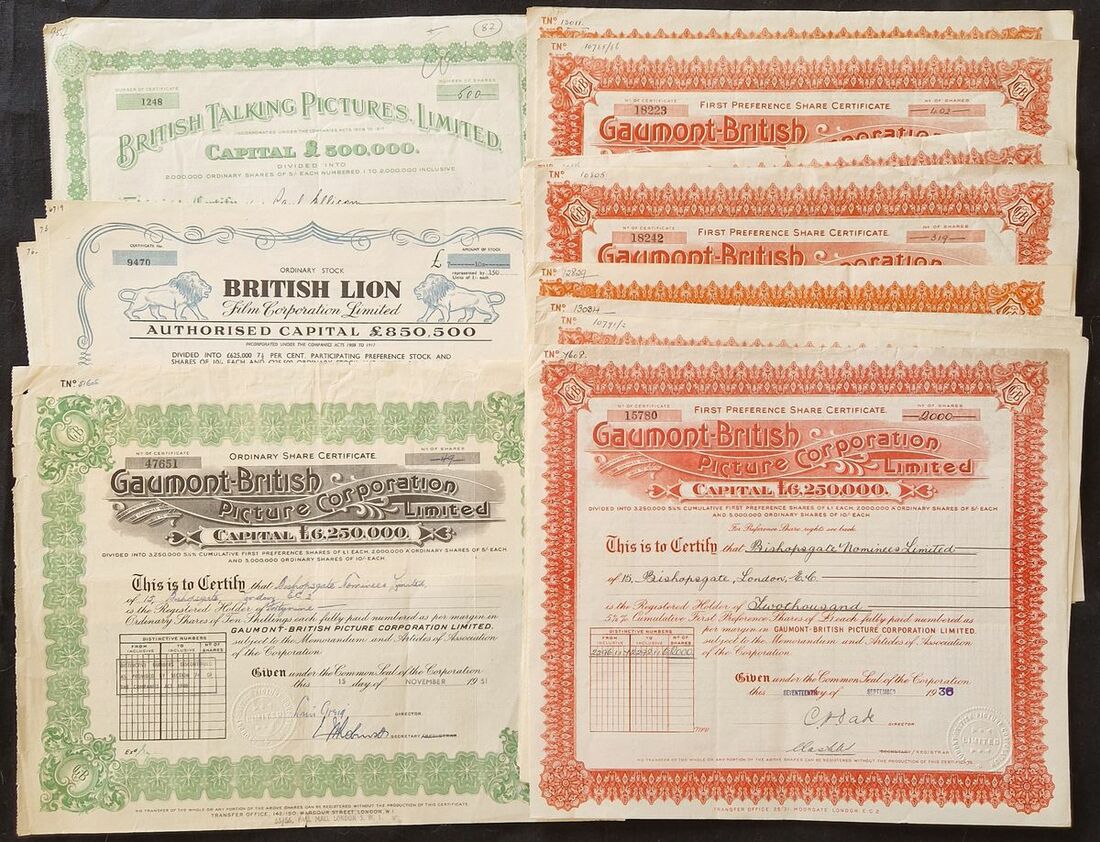 82
NUMBER OF CERTIFICATE
1248
NUMBER OF SHARES
500
BRITISH TALKING PICTURES, LIMITED.
INCORPORATED UNDER THE COMPANIES ACTS 1908 TO 1917
CAPITAL £500,000.
DIVIDED INTO
2,000,000 ORDINARY SHARES OF 5/- EACH NUMBERED 1 TO 2,000,000 INCLUSIVE
CERTIFICATE No.
9470
ORDINARY STOCK
£
AMOUNT OF STOCK
represented by 150
Units of 1/- each.
BRITISH LION
Film Corporation Limited
AUTHORISED CAPITAL £850,500
INCORPORATED UNDER THE COMPANIES ACTS 1908 TO 1917
DIVIDED INTO £625,000 7½ PER CENT. PARTICIPATING PREFERENCE STOCK AND
T.Nº
GB
Nº OF CERTIFICATE
47651
ORDINARY SHARE CERTIFICATE.
Nº OF SHARES
49
Gaumont-British
Picture Corporation
Limited
CAPITAL £6,250,000.
DIVIDED INTO 3,250,000 5½% CUMULATIVE FIRST PREFERENCE SHARES OF £1 EACH, 2,000,000 'A' ORDINARY SHARES OF 5/- EACH
AND 5,000,000 ORDINARY SHARES OF 10/- EACH.
This is to Certify that Bishopsgate Nominees Limited
of 15, Bishopsgate London EC2
is the Registered Holder of Fortynine
Ordinary Shares of Ten Shillings each, fully paid numbered as per margin in
GAUMONT-BRITISH PICTURE CORPORATION LIMITED,
subject to the Memorandum and Articles of Association
of the Corporation.
DISTINCTIVE NUMBERS
FROM INCLUSIVE
TO INCLUSIVE
Nº OF SHARES
Given under the Common Seal of the Corporation
this 15 day of NOVEMBER 1951
DIRECTOR.
SECRETARY/REGISTRAR
NO TRANSFER OF THE WHOLE OR ANY PORTION OF THE ABOVE SHARES CAN BE REGISTERED WITHOUT THE PRODUCTION OF THIS CERTIFICATE.
TRANSFER OFFICE, 142/150, WARDOUR STREET, LONDON, W.1
PALL MALL LONDON S.W.1
T.Nº 13011
T.Nº 10725/26
GB
Nº OF CERTIFICATE
18223
FIRST PREFERENCE SHARE CERTIFICATE.
Nº OF SHARES
402
Gaumont-British
Corporation
T.Nº 10805
GB
Nº OF CERTIFICATE
18242
FIRST PREFERENCE SHARE CERTIFICATE.
Nº OF SHARES
319
Gaumont-British
Corporation
T.Nº 12829
T.Nº
T.Nº 10791/2
T.Nº 7608.
GB
Nº OF CERTIFICATE
15780
FIRST PREFERENCE SHARE CERTIFICATE.
Nº OF SHARES
2000
Gaumont-British
Picture Corporation
Limited
CAPITAL £6,250,000.
DIVIDED INTO 3,250,000 5½% CUMULATIVE FIRST PREFERENCE SHARES OF £1 EACH, 2,000,000 'A' ORDINARY SHARES OF 5/- EACH
AND 5,000,000 ORDINARY SHARES OF 10/- EACH.
For Preference Share rights see back.
This is to Certify that Bishopsgate Nominees Limited
of 15, Bishopsgate, London, E.C.
is the Registered Holder of Twothousand
5½% Cumulative First Preference Shares of £1 each, fully paid numbered as
per margin in GAUMONT-BRITISH PICTURE CORPORATION LIMITED,
subject to the Memorandum and Articles of Association
of the Corporation.
DISTINCTIVE NUMBERS
FROM INCLUSIVE
TO INCLUSIVE
Nº OF SHARES
Given under the Common Seal of the Corporation
this SEVENTEENTH day of SEPTEMBER 1936
DIRECTOR
SECRETARY/REGISTRAR
LIMITED
NO TRANSFER OF THE WHOLE OR ANY PORTION OF THE ABOVE SHARES CAN BE REGISTERED WITHOUT THE PRODUCTION OF THIS CERTIFICATE.
TRANSFER OFFICE, 25/31, MOORGATE, LONDON, E.C.2